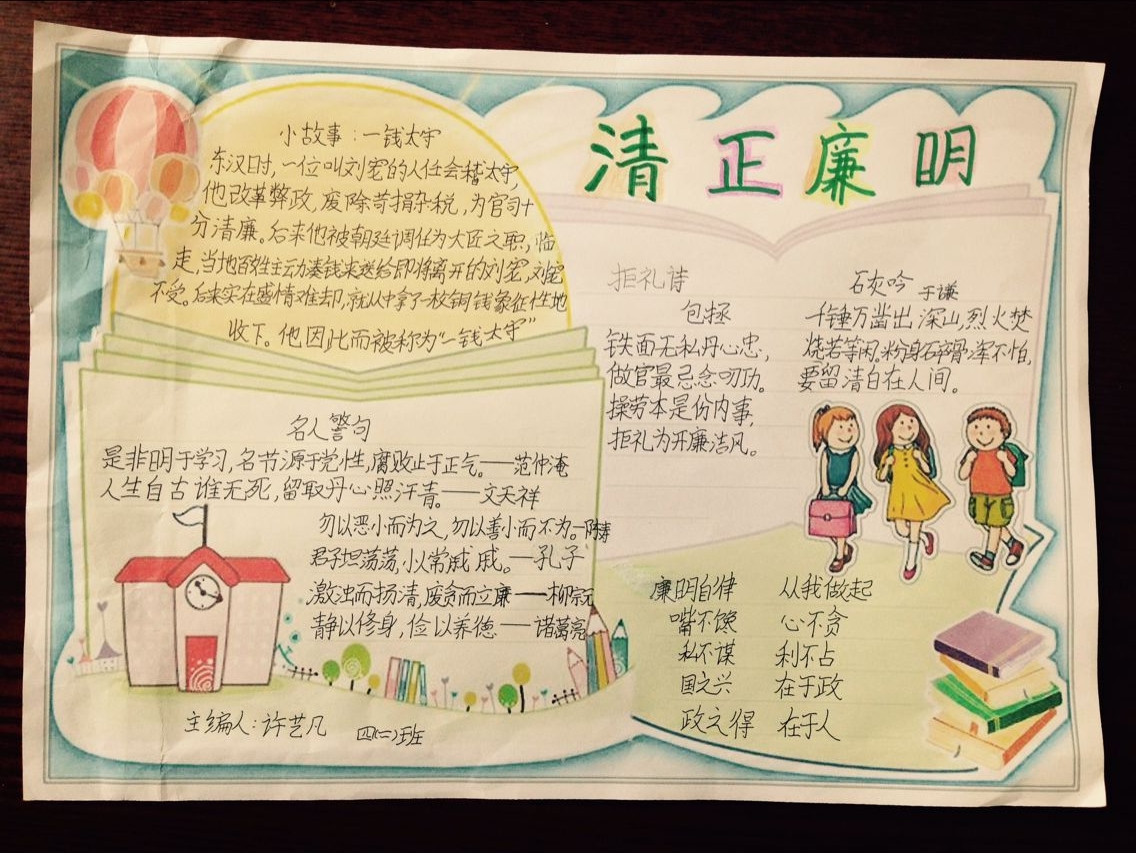 清正廉明
小故事：一钱太守
东汉时，一位叫刘宠的人任会稽太守，
他改革弊政，废除苛捐杂税，为官司十
分清廉。后来他被朝廷调任为大匠之职，临
走，当地百姓主动凑钱来送给即将离开的刘宠，刘宠
不受。后来实在盛情难却，就从中拿了一枚铜钱象征性地
收下。他因此而被称为“一钱太守”
名人警句
是非明于学习，名节源于党性，腐败止于正气。——范仲淹
人生自古谁无死，留取丹心照汗青。——文天祥
勿以恶小而为之，勿以善小而不为。—陈寿
君子坦荡荡，小人常戚戚。—孔子
激浊而扬清，废贪而立廉——柳宗元
静以修身，俭以养德——诸葛亮
主编人：许艺凡 四(二)班
拒礼诗
包拯
铁面无私丹心忠，
做官最忌念叨功。
操劳本是份内事，
拒礼为开廉洁风。
石灰吟 于谦
千锤万凿出深山，烈火焚
烧若等闲。粉身碎骨浑不怕，
要留清白在人间。
廉明自律 从我做起
嘴不馋 心不贪
私不谋 利不占
国之兴 在于政
政之得 在于人